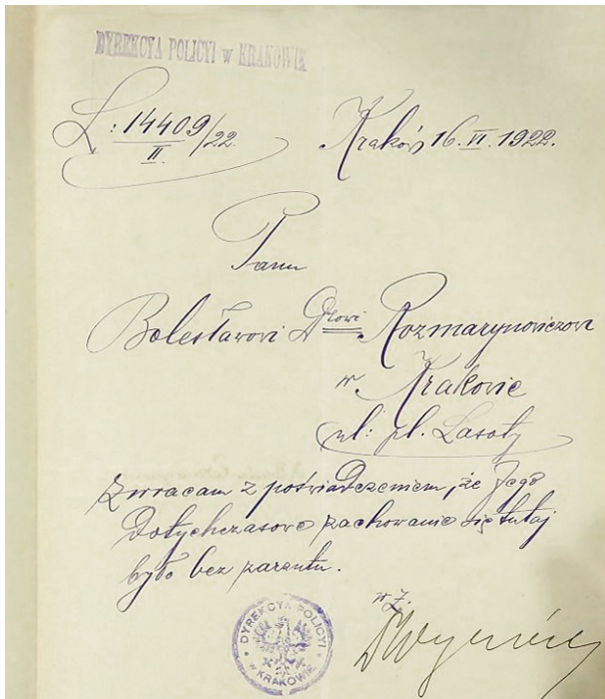 DYREKCYA POLICYI w KRAKOWIE
L: 14409/22.
II.
Kraków 16. VI. 1922.
Panu
Bolesławowi Drowi Rozmarynowiczowi
w Krakowie
ul: pl. Lasoty
Zwracam z poświadczeniem, że Jego
dotychczasowe zachowanie się tutaj
było bez zarzutu.
w z.
DYREKCYA POLICYI
w KRAKOWIE